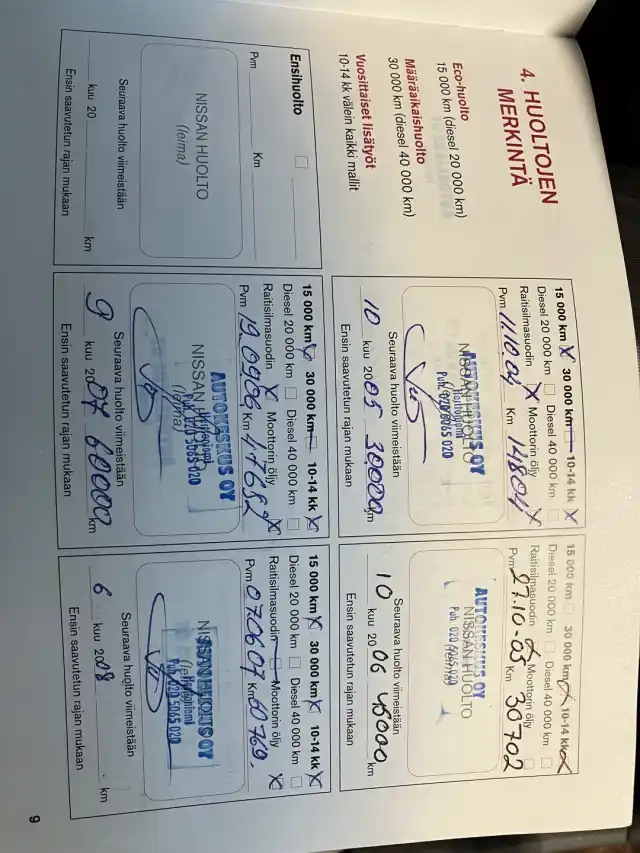 4. HUOLTOJEN
MERKINTÄ
Eco-huolto
15 000 km (diesel 20 000 km)
Määräaikaishuolto
30 000 km (diesel 40 000 km)
Vuosittaiset lisätyöt
10-14 kk välein kaikki mallit
Ensihuolto
Pvm Km
NISSAN HUOLTO
(leima)
Seuraava huolto viimeistään
kuu 20 km
Ensin saavutetun rajan mukaan
15 000 km X 30 000 km 10-14 kk X
Diesel 20 000 km Diesel 40 000 km
Raitisilmasuodin X Moottorin öljy X
Pvm 11.10.04 Km 14804
AUTOKESKUS OY
NISSAN HUOLTO
Puh. 020 5065 020
Seuraava huolto viimeistään
10 kuu 2005 30.000 km
Ensin saavutetun rajan mukaan
15 000 km 30 000 km X 10-14 kk X
Diesel 20 000 km Diesel 40 000 km
Raitisilmasuodin X Moottorin öljy
Pvm 27.10-05 Km 30702
AUTOKESKUS OY
NISSAN HUOLTO
Seuraava huolto viimeistään
10 kuu 2006 45000 km
Ensin saavutetun rajan mukaan
15 000 km X 30 000 km 10-14 kk X
Diesel 20 000 km Diesel 40 000 km
Raitisilmasuodin X Moottorin öljy X
Pvm 19.0906 Km 47652
AUTOKESKUS OY
NISSAN
(leima)
Puh. 020 5065 020
Seuraava huolto viimeistään
9 kuu 2007 60000 km
Ensin saavutetun rajan mukaan
15 000 km X 30 000 km X 10-14 kk X
Diesel 20 000 km Diesel 40 000 km
Raitisilmasuodin Moottorin öljy X
Pvm 070607 Km 60769.
Puh. 020 5065 020
Seuraava huolto viimeistään
6 kuu 2008 km
Ensin saavutetun rajan mukaan
9